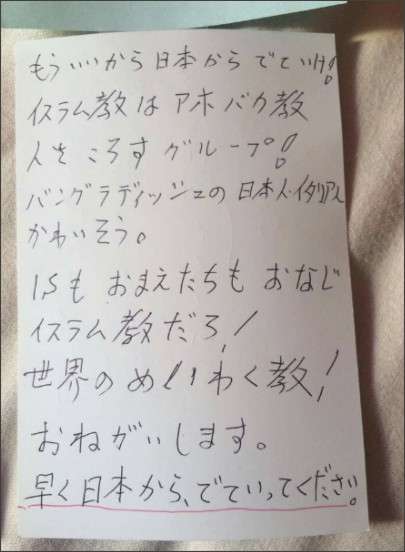 もういいから日本からでていけ!
イスラム教はアホバカ教
人をころすグループ!
バングラディッシュの日本人・イタリア人
かわいそう。
ISもおまえたちもおなじ
イスラム教だろ!
世界のめいわく教!
おねがいします。
早く日本から、でていってください。